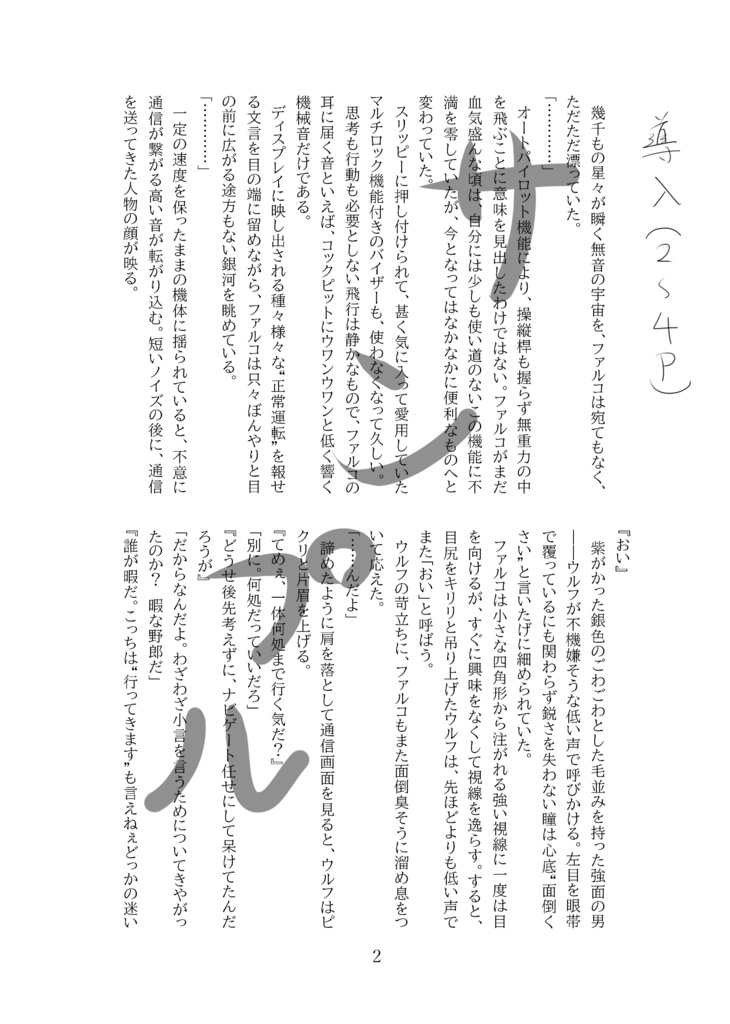 導入(2～4P)
サンプル
幾千もの星々が瞬く無音の宇宙を、ファルコは宛てもなく、
ただただ漂っていた。
「…………」
オートパイロット機能により、操縦桿も握らず無重力の中
を飛ぶことに意味を見出したわけではない。ファルコがまだ
血気盛んな頃は、自分には少しも使い道のないこの機能に不
満を零していたが、今となってはなかなかに便利なものへと
変わっていた。
スリッピーに押し付けられて、甚く気に入って愛用していた
マルチロック機能付きのバイザーも、使わなくなって久しい。
思考も行動も必要としない飛行は静かなもので、ファルコの
耳に届く音といえば、コックピットにウワンウワンと低く響く
機械音だけである。
ディスプレイに映し出される種々様々な“正常運転”を報せ
る文言を目の端に留めながら、ファルコは只々ぼんやりと目
の前に広がる途方もない銀河を眺めている。
「…………」
一定の速度を保ったままの機体に揺られていると、不意に
通信が繋がる高い音が転がり込む。短いノイズの後に、通信
を送ってきた人物の顔が映る。
『おい』
紫がかった銀色のごわごわとした毛並みを持った強面の男
――ウルフが不機嫌そうな低い声で呼びかける。左目を眼帯
で覆っているにも関わらず鋭さを失わない瞳は心底“面倒く
さい”と言いたげに細められていた。
ファルコは小さな四角形から注がれる強い視線に一度は目
を向けるが、すぐに興味をなくして視線を逸らす。すると、
目尻をキリリと吊り上げたウルフは、先ほどよりも低い声で
また「おい」と呼ばう。
ウルフの苛立ちに、ファルコもまた面倒臭そうに溜め息をつ
いて応えた。
「……んだよ」
諦めたように肩を落として通信画面を見ると、ウルフはピ
クリと片眉を上げる。
『てめぇ、一体何処まで行く気だ？』
「別に。何処だっていいだろ」
『どうせ後先考えずに、ナビゲート任せにして呆けてたんだ
ろうが』
「だからなんだよ。わざわざ小言を言うためについてきやがっ
たのか？　暇な野郎だ」
『誰が暇だ。こっちは“行ってきます”も言えねぇどっかの迷い
2